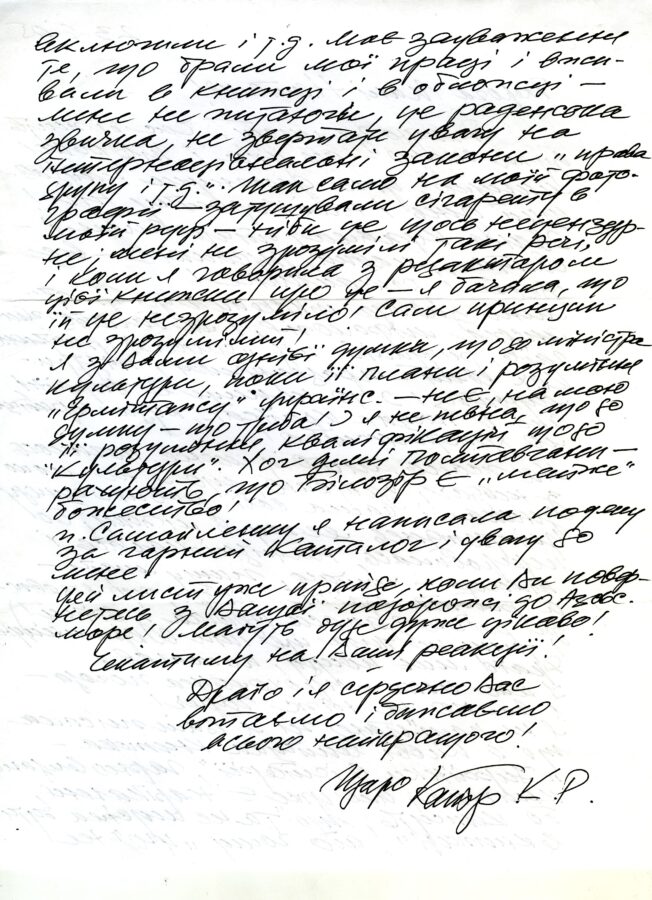 включили і т.д. моє зауваження
те, що брали мої праці і вжи-
вали в книжці і в обложці —
мене не питаючи, це радянська
звичка, не звертати увагу на
інтернаціональні закони „права
друку і т.д.". Так само на моїй фото-
графії — затушували сігарету в
моїй руці — ніби це щось нецензур-
не, мені не зрозумілі такі речі,
і коли я говорила з редактором
цієї книжки про це — я бачила, що
їй це незрозуміло! Сам принцип
не зрозумілий!
Я з Вами однієї думки, щодо міністра
культури, поки її плани і розуміння
„Ермітажу" українс. — не є, на мою
думку — що треба! Я не певна, щодо
її розуміння кваліфікацій щодо
"Культури". Хоч деякі
рахують, що Білозір є „майже"
божество!
п. Самойленку я написала подяку
за гарний каталог і увагу до
мене.
Цей лист уже прийде, коли Ви повер-
нетесь з Вашої подорожі до Азовс.
море! Мабуть дуже цікаво!
Чекатиму на Ваші реакції!
Драґо і я сердечно Вас
вітаємо і бажаємо
всього найкращого!
Щиро К. Р.